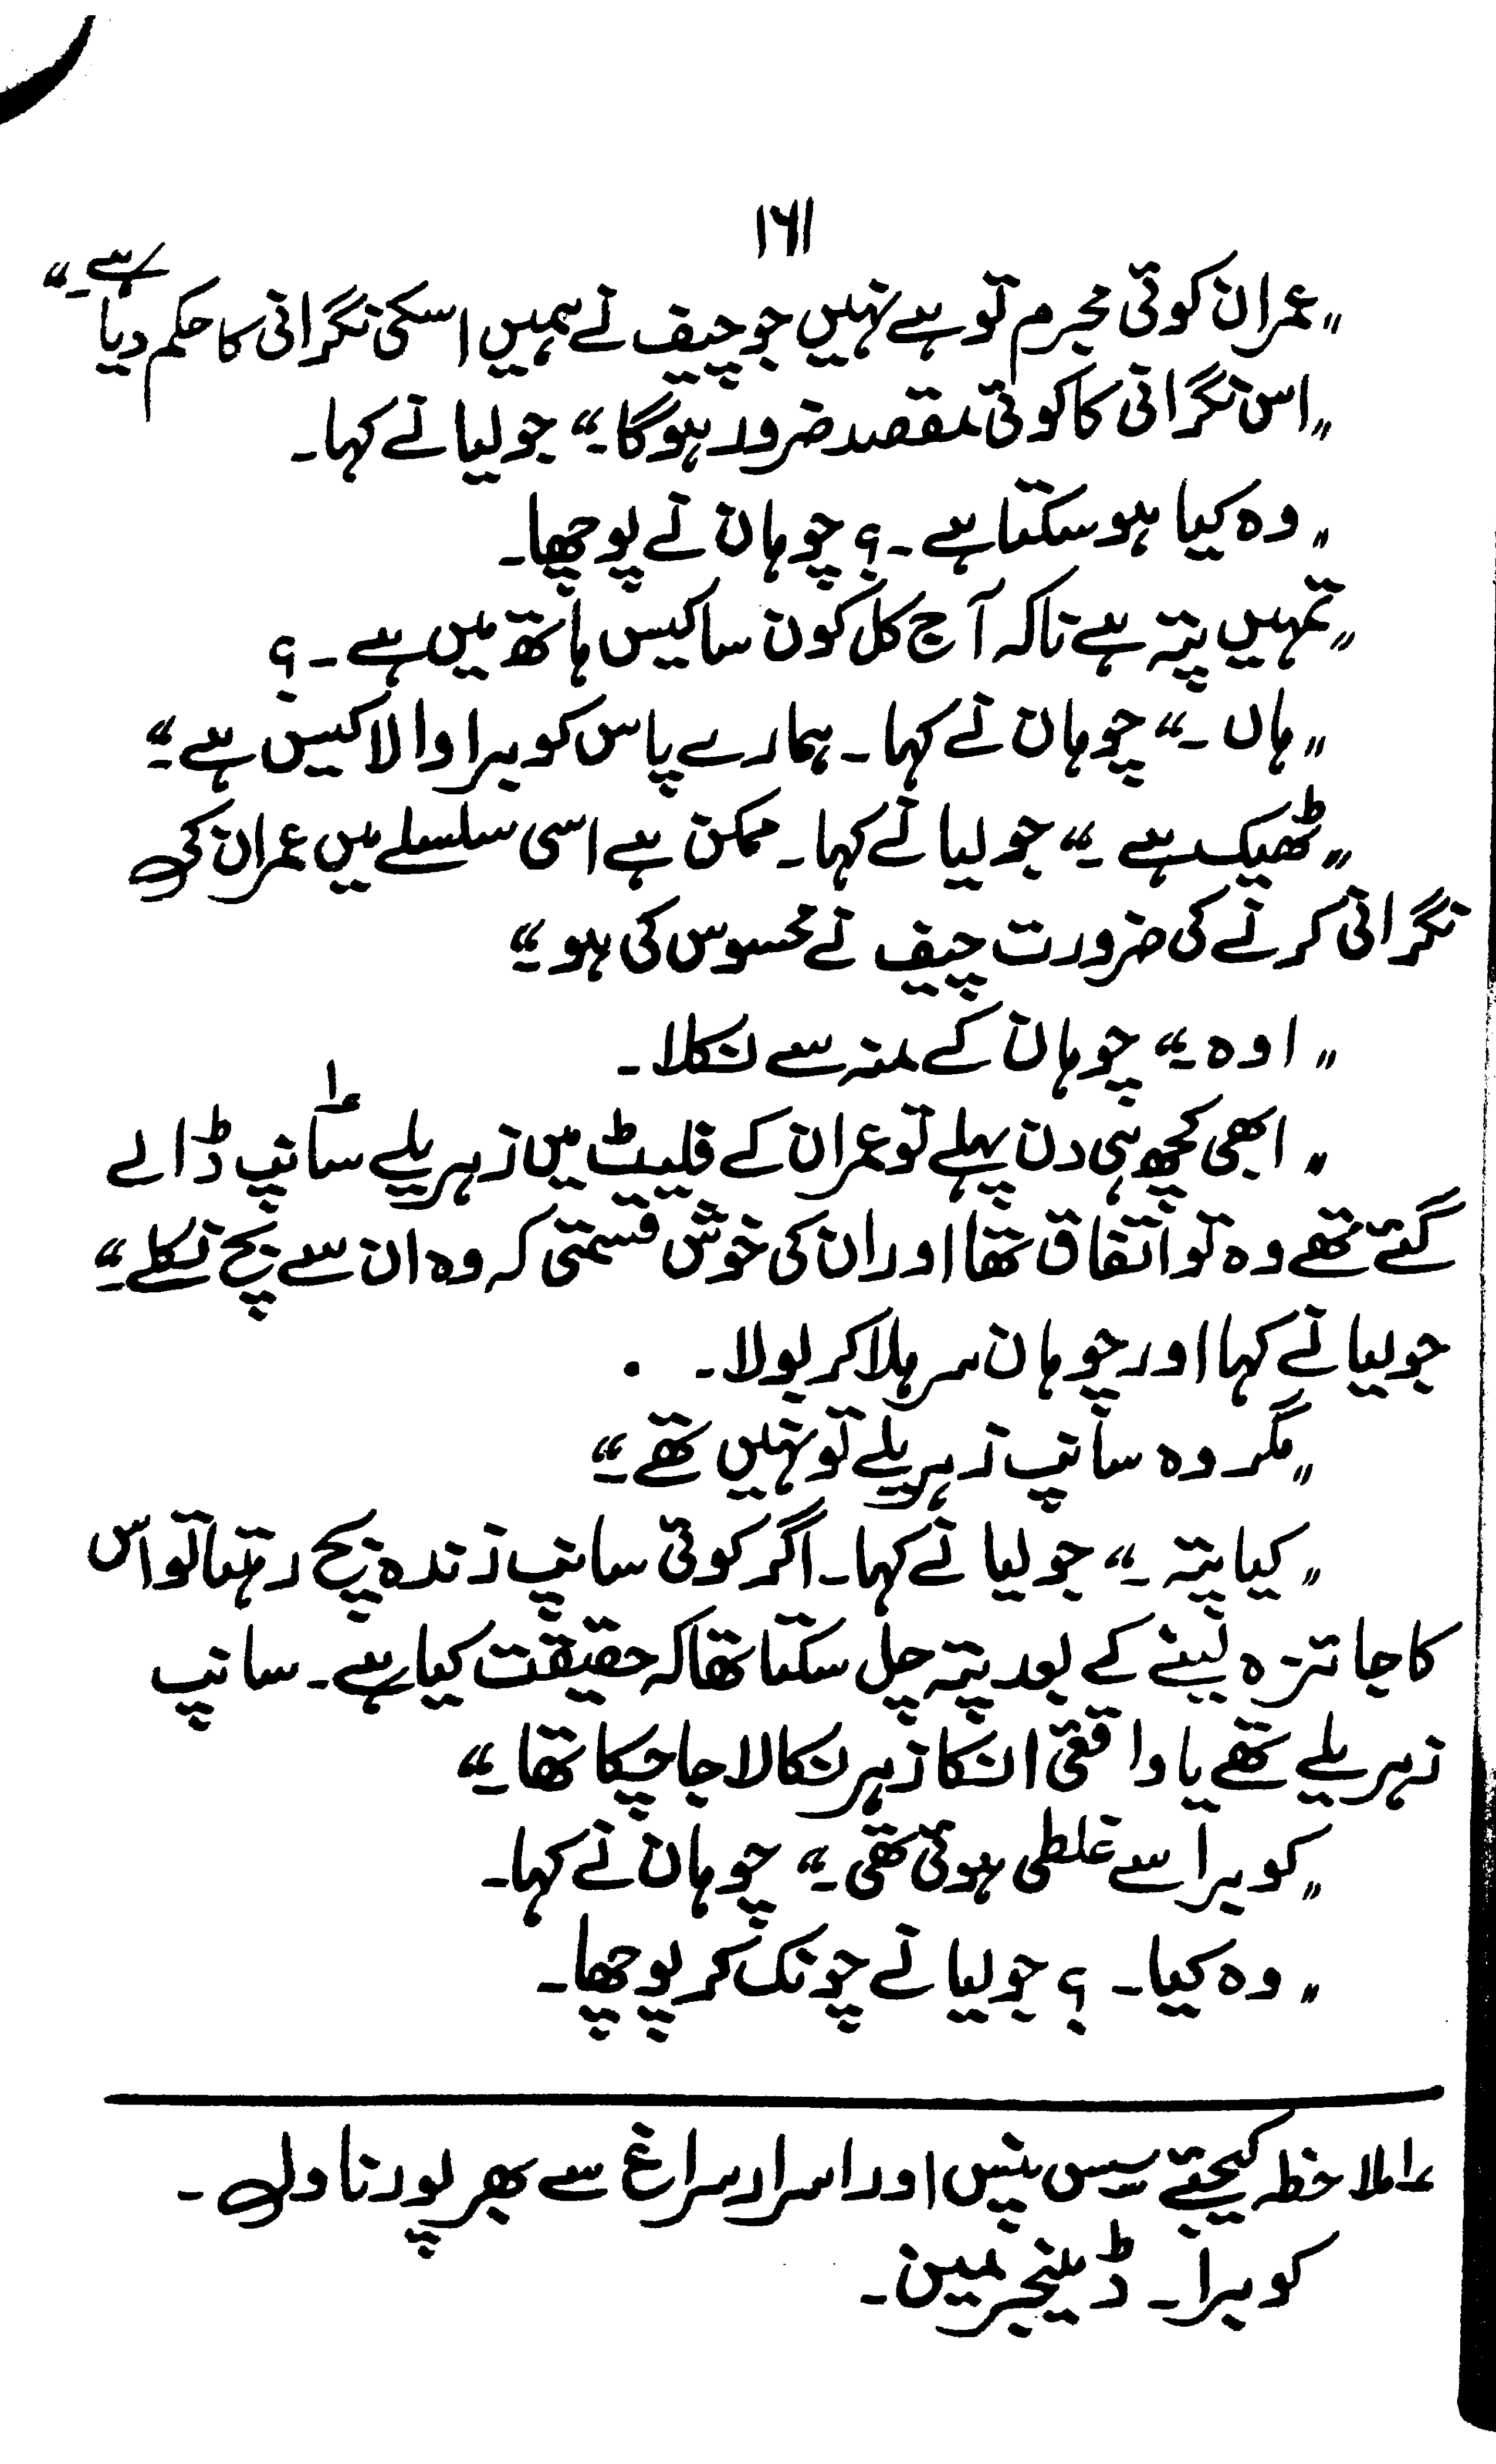 ۱۶۱
"عمران کوئی مجرم تو ہے نہیں جو چیف نے ہمیں اسکی نگرانی کا حکم دیا ہے۔"
"اس نگرانی کا کوئی مقصد ضرور ہوگا۔" جولیا نے کہا۔
"وہ کیا ہو سکتا ہے۔؟ چوہان نے پوچھا۔
"تمہیں پتہ ہے ناکہ آج کل کون سا کیس ہاتھ میں ہے۔؟
"ہاں۔" چوہان نے کہا۔ ہمارے پاس کوبرا والا کیس ہے۔"
"ٹھیک ہے۔" جولیا نے کہا۔ ممکن ہے اسی سلسلے میں عمران کی
نگرانی کرنے کی ضرورت چیف نے محسوس کی ہو۔"
"اوہ۔" چوہان کے منہ سے نکلا۔
"ابھی کچھ ہی دن پہلے تو عمران کے فلیٹ میں زہریلے سانپ ؂۱ ڈالے
گئے تھے وہ تو اتفاق تھا اور ان کی خوش قسمتی کہ وہ ان سے بچ نکلے۔"
جولیا نے کہا اور چوہان سر ہلا کر بولا۔
"مگر وہ سانپ زہریلے تو نہیں تھے۔"
"کیا پتہ۔" جولیا نے کہا۔ اگر کوئی سانپ زندہ بچ رہتا تو اس
کا جائزہ لینے کے بعد پتہ چل سکتا تھا کہ حقیقت کیا ہے۔ سانپ
زہریلے تھے یا واقعی انکا زہر نکالا جا چکا تھا۔"
"کوبرا سے غلطی ہوئی تھی۔" چوہان نے کہا۔
"وہ کیا۔؟ جولیا نے چونک کر پوچھا۔
؂۱ ملاخظہ کیجئے سپس پنس اور اسرار سراغ سے بھر پور ناول۔
کوبرا۔ ڈینجر مین۔